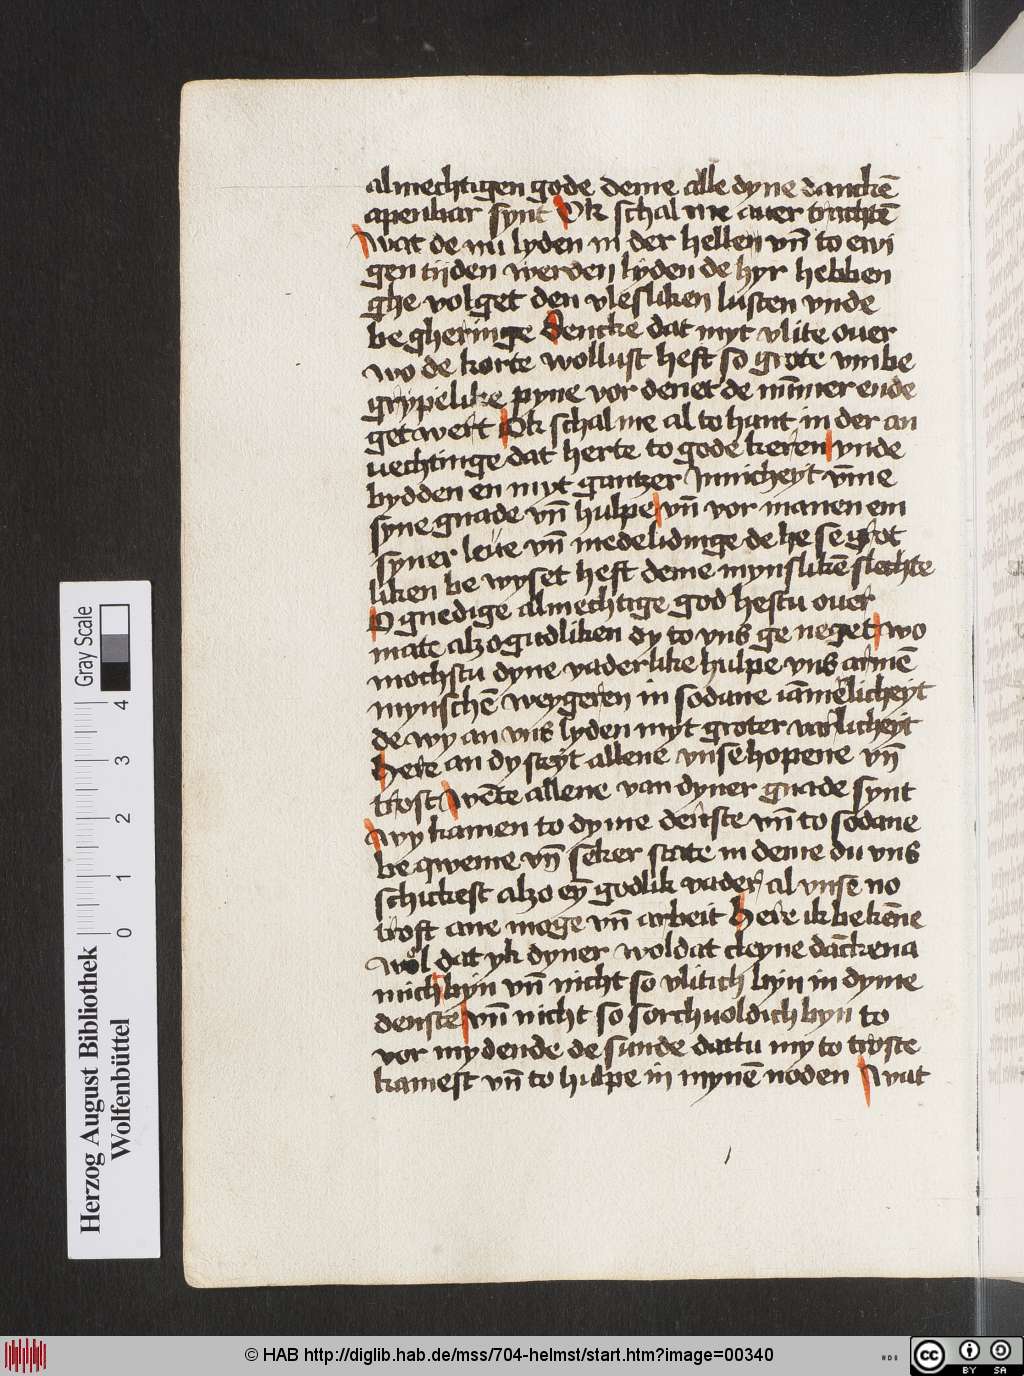 almechtigen gode deme alle dyne danckē
apenbar synt Ok schal me auer trachtē
wat de nu lyden in der hellen vn̄ to ewi
gen tijden werden lyden de hyr hebben
ghe volget den vlesliken lusten vnde
be gheringe Dencke dat myt vlite ouer
wo de korte wollust heft so grote vmbe
grypelike pyne vor denet de nūmer ende
get wert Ok schal me al to hant in der an
uechtinge dat herte to gode keren vnde
bydden en myt gantzer Innicheyt vm̄e
syne gnade vn̄ hulpe vn̄ vor manen em
syner leue vn̄ medelidinge de he se grot
liken be wyset heft deme mynslikē slechte
O gnedige almechtige god hestu ouer
mate alzo gudliken dy to vns ge neget wo
mochstu dyne vaderlike hulpe vns armē
mynschē weygeren in sodane iāmerlicheyt
de wy an vns lyden myt groter varlicheyt
Here an dy steyt allene vnse hopene vn̄
trost Wēte allene van dyner gnade synt
wy kamen to dyme denste vn̄ to sodane
be qweme vn̄ seker state in deme du vns
schickest alzo eȳ godlik vader al vnse no
troft ane moge vn̄ arbeit Here ik be kēne
wol dat yk dyner woldat cleyne dāckena
mich byn vn̄ nicht so vlitich byn in dyme
denste vn̄ nicht so sorchuoldich byn to
vor mydende de sunde dattu my to troste
kamest vn̄ to hulpe in mynē noden Wat
Herzog August Bibliothek
Wolfenbüttel
Gray Scale
0 1 2 3 4
© HAB http://diglib.hab.de/mss/704-helmst/start.htm?image=00340
cc BY SA